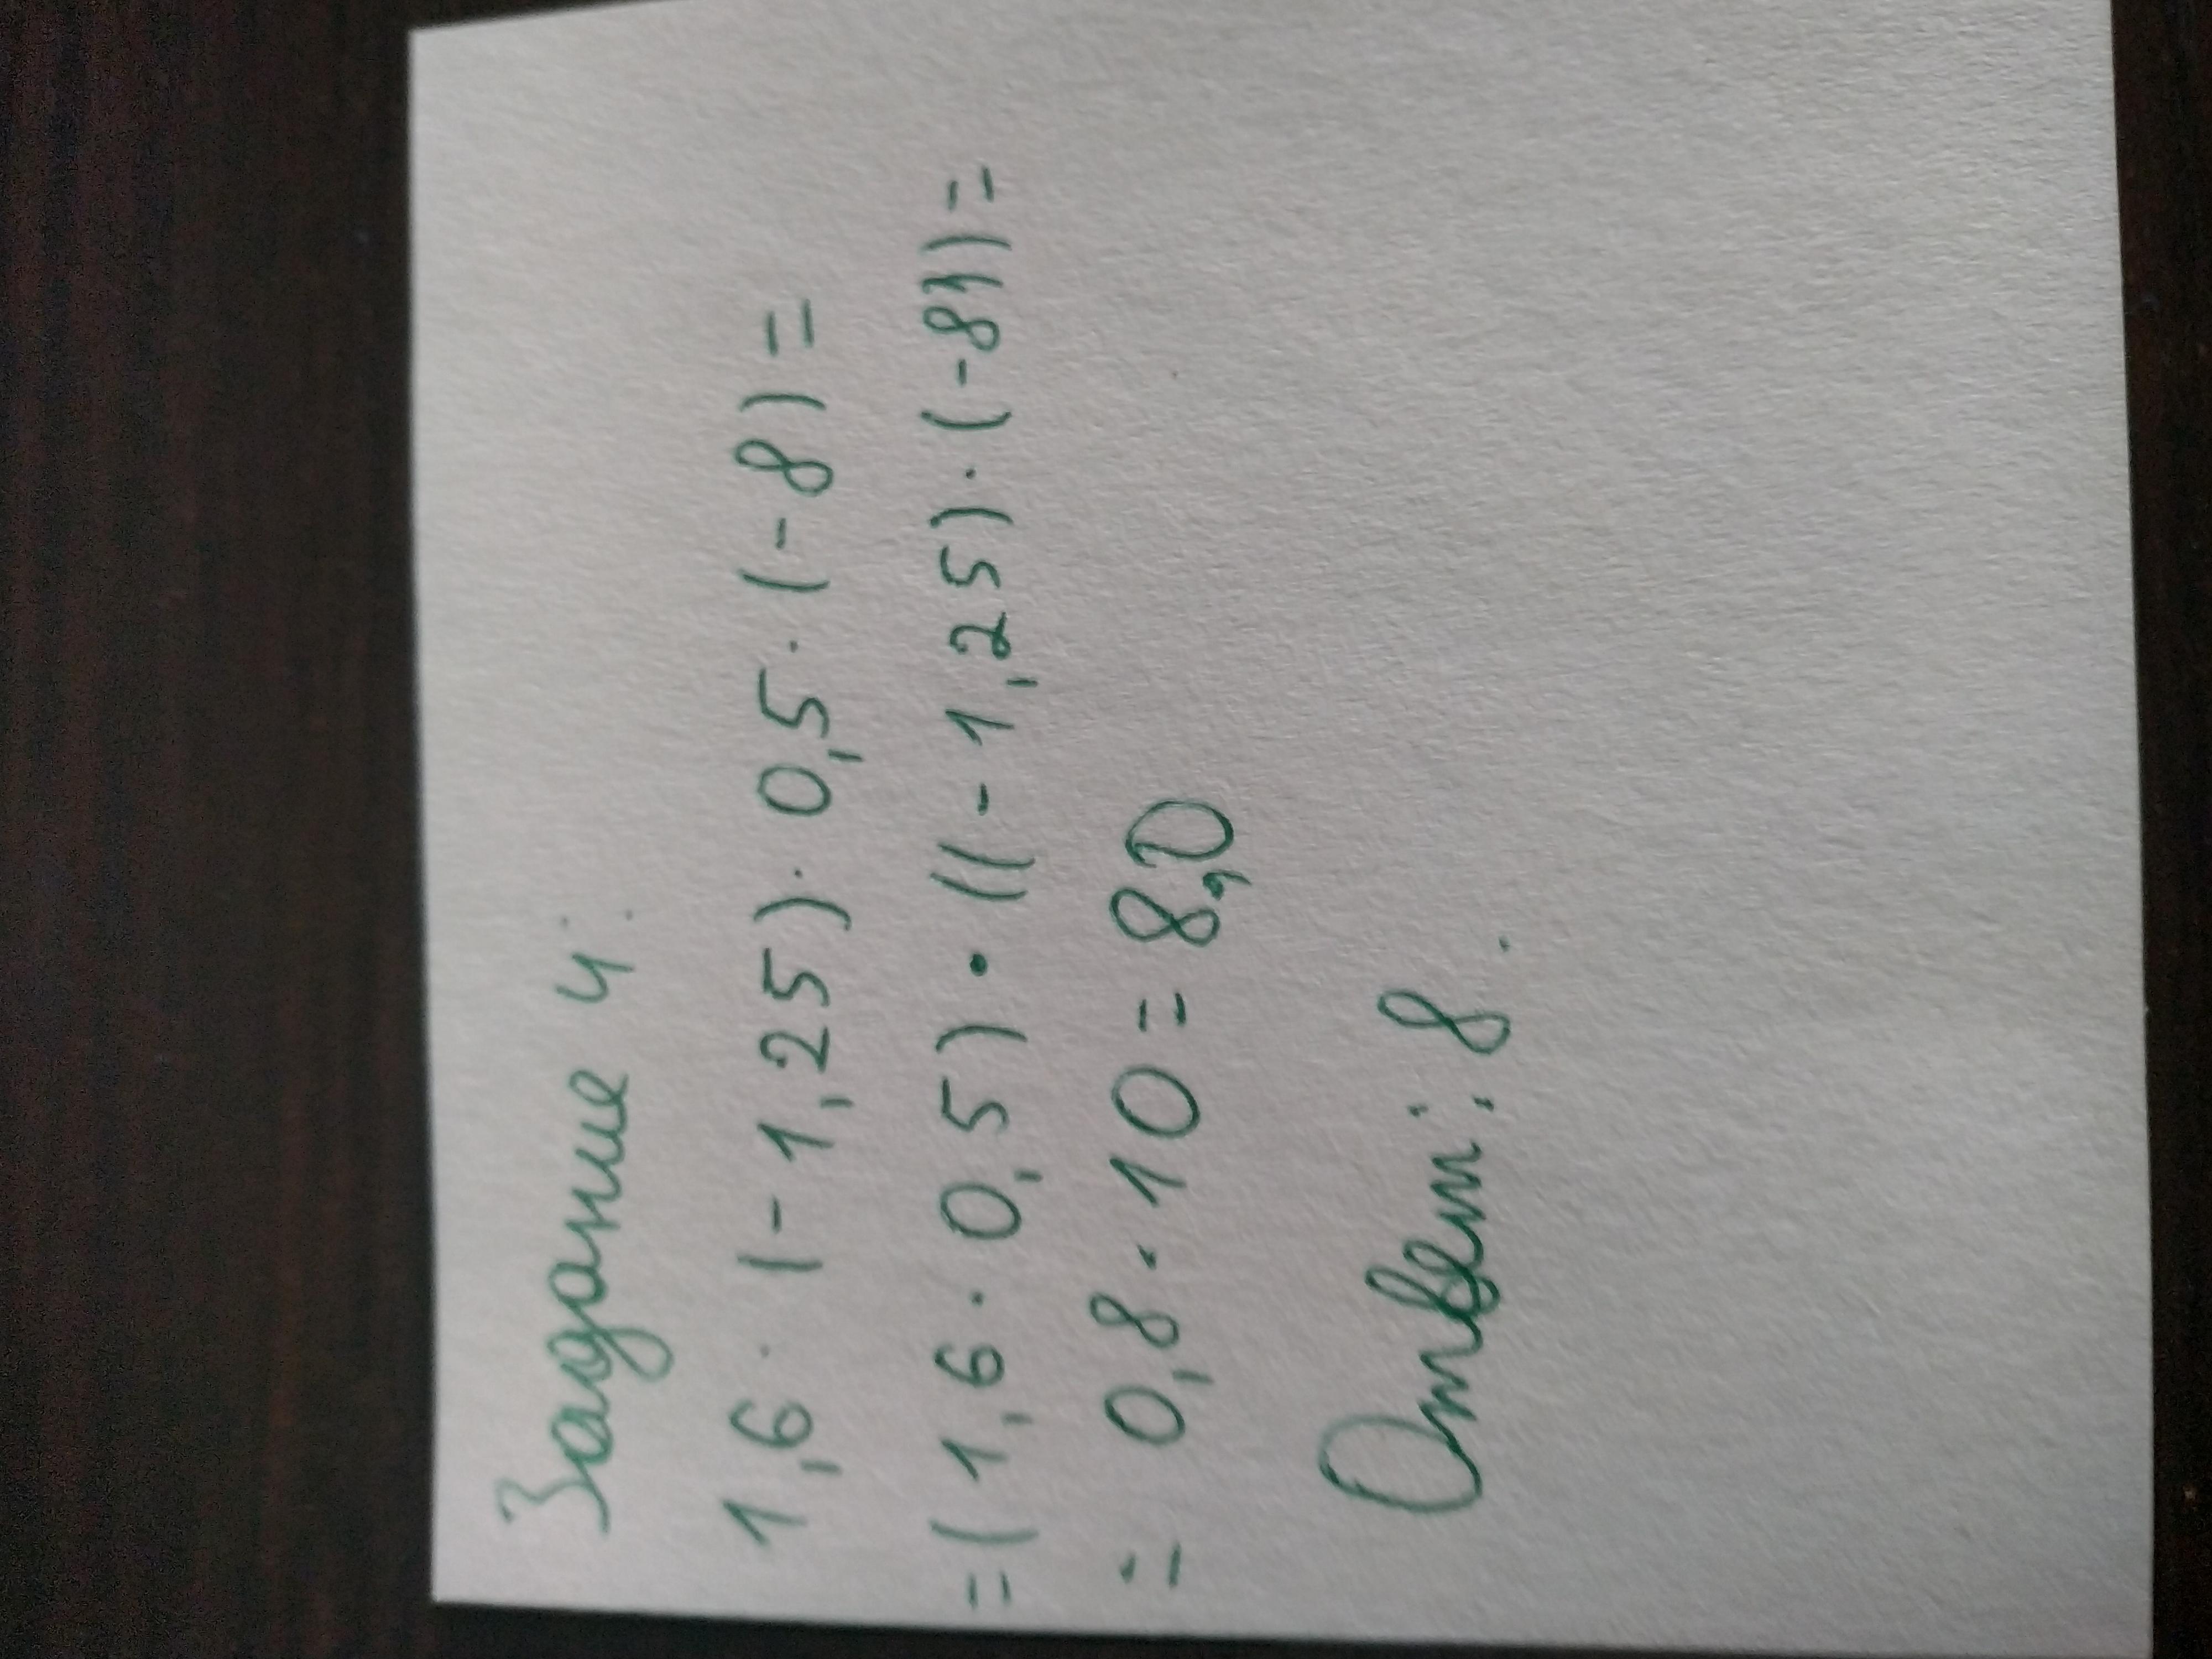 Задание 4.
1,6 · (-1,25) · 0,5 · (-8) =
= (1,6 · 0,5) · ((-1,25) · (-8)) =
= 0,8 · 10 = 8,0
Ответ: 8.